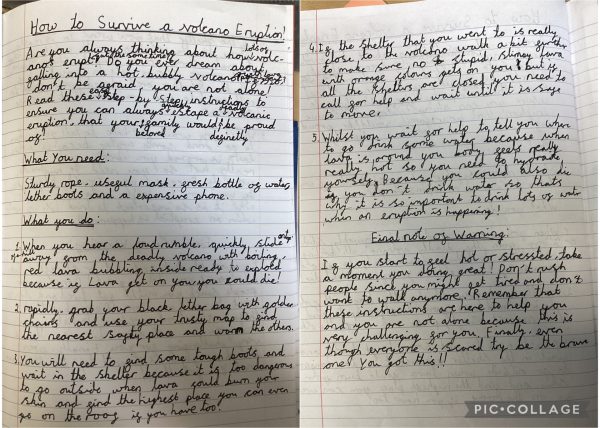 How to Survive a volcano Eruption!
Are you always thinking about how volc-
anos erupt? Do you ever dream about
falling into a hot, bubbly volcano?
don't be afraid you are not alone!
Read these easy step-by step instructions to
ensure you can always escape a volcanic
eruption, that your family would be proud
of!
beloved
definetly
What You need:
Sturdy rope, useful mask, fresh bottle of water,
lether boots and a expensive phone.
What you do:
1. When you hear a loud rumble, quickly, slide
away from the deadly volcano with boiling,
red lava bubbling inside ready to explod
because if Lava get on you, you could die!
2. rapidly, grab your black letter bag with golden
chains and use your trusty map to find
the nearest safty place and warn the others.
3. You will need to find some tough boots, and
wait in the shelter because it is too dangerous
to go outside when lava could burn your
skin and find the highest place you can even
go on the roof if you have too!
4. If the shelter that you went to is really
close to the volcano walk a bit further
to make sure no stupid, slimey lava
with orange colours gets on you but if
all the shelters are closed you need to
call for help and wait until it is safe
to move.
5. Whilst you wait for help to tell you where
to go drink some water because when
lava is around you body gets really
really hot so you need to hydrate
yourself. Because you could also die
if you don't drink water so thats
why it is so important to drink lots of water
when an eruption is happening!
Final note of Warning:
If you start to feel hot or stressted, take
a moment you doing great! Don't rush
people since you might get tired and don't
want to walk anymore. Remember that
these instructions are here to help you
and you are not alone because this is
very challenging for you. Finally, even
though everyone is scared try be the brave
one! You got this!!
PIC•COLLAGE